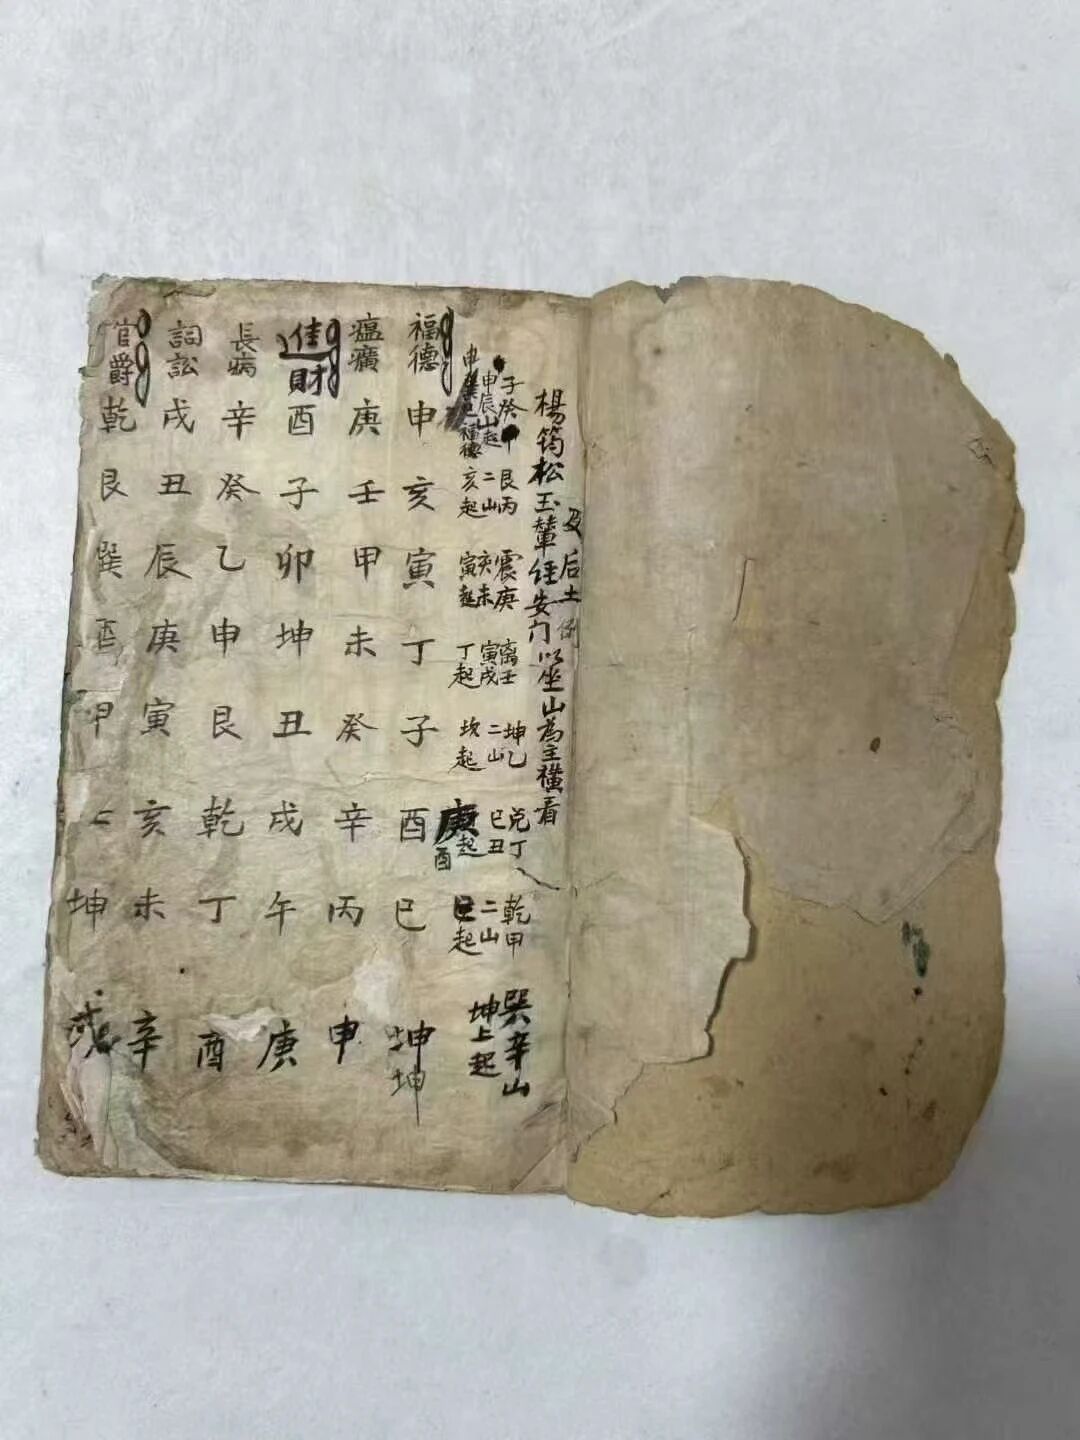 楊筠松玉輦经安门以坐山為主横看
及后土例
子癸申
申辰山起
艮丙
二山
亥起
震庚
亥未
寅起
离壬
寅戌
丁起
坤乙
二山
坎起
兑丁
巳丑
庚起
酉
乾甲
二山
巳起
巽辛山
坤上起
福德
申
亥
寅
丁
子
酉
巳
坤
坤
瘟癀
庚
壬
甲
未
癸
辛
丙
申
進財
酉
子
卯
坤
丑
戌
午
庚
長病
辛
癸
乙
申
艮
乾
丁
酉
詞訟
戌
丑
辰
庚
寅
亥
未
辛
官爵
乾
艮
巽
酉
甲
坤
戌